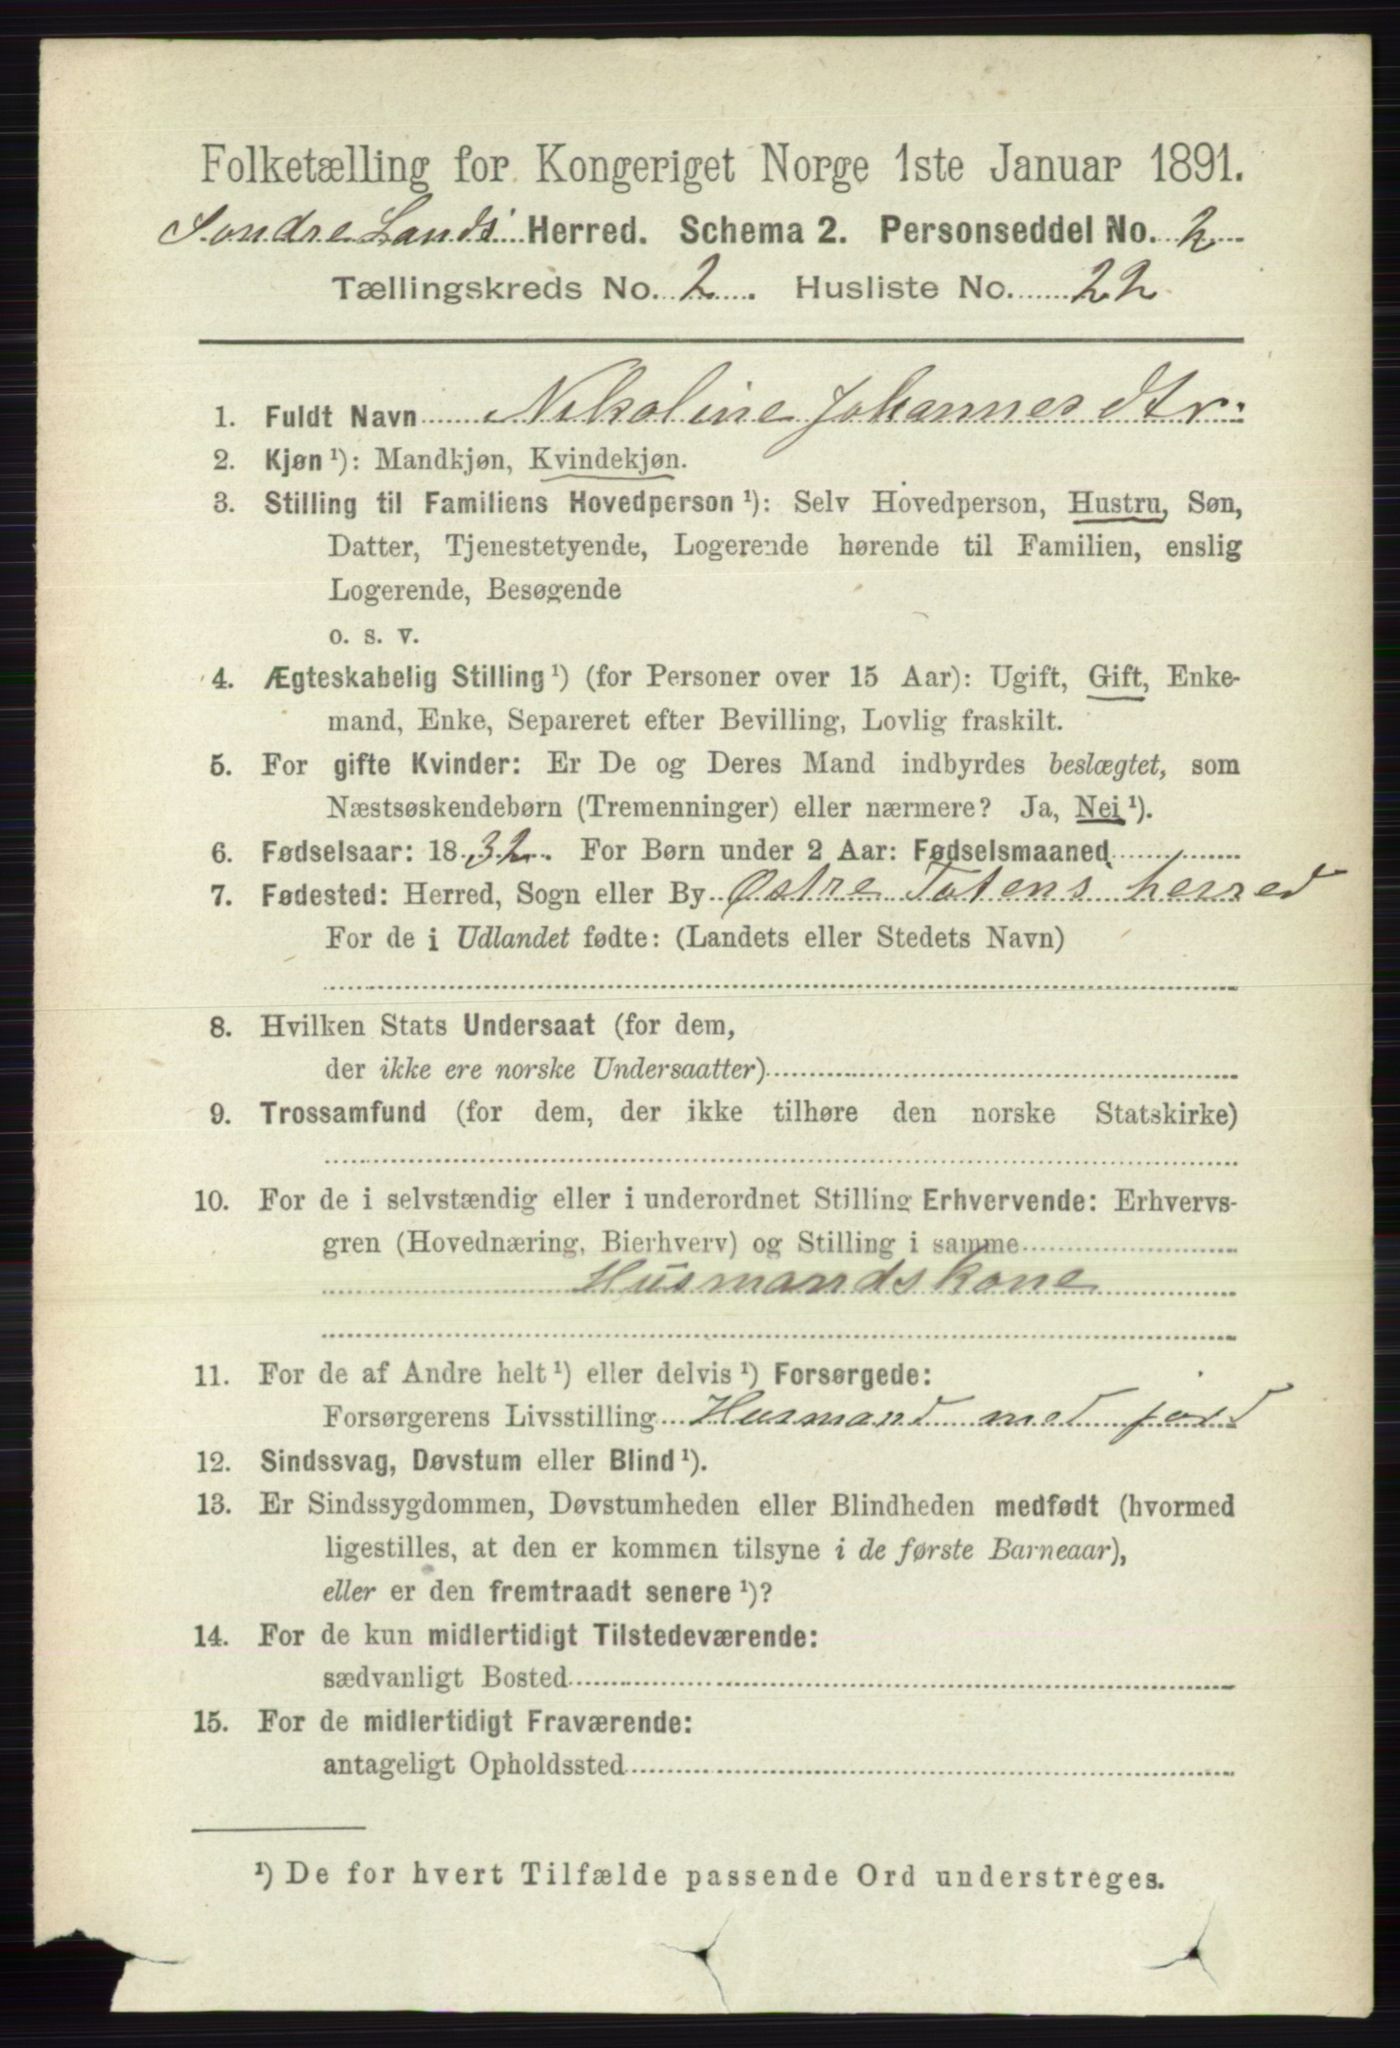 Folketælling for Kongeriget Norge 1ste Januar 1891.
Søndre Lands Herred. Schema 2. Personseddel No. 2
Tællingskreds No. 2. Husliste No. 22
1. Fuldt Navn Nikoline Johannesdtr.
2. Kjøn ¹): Mandkjøn, Kvindekjøn.
3. Stilling til Familiens Hovedperson ¹): Selv Hovedperson, Hustru, Søn,
Datter, Tjenestetyende, Logerende hørende til Familien, enslig
Logerende, Besøgende
o. s. v.
4. Ægteskabelig Stilling ¹) (for Personer over 15 Aar): Ugift, Gift, Enke-
mand, Enke, Separeret efter Bevilling, Lovlig fraskilt.
5. For gifte Kvinder: Er De og Deres Mand indbyrdes beslægtet, som
Næstsøskendebørn (Tremenninger) eller nærmere? Ja, Nei ¹).
6. Fødselsaar: 1832. For Børn under 2 Aar: Fødselsmaaned
7. Fødested: Herred, Sogn eller By Østre Totens herred
For de i Udlandet fødte: (Landets eller Stedets Navn)
8. Hvilken Stats Undersaat (for dem,
der ikke ere norske Undersaatter)
9. Trossamfund (for dem, der ikke tilhøre den norske Statskirke)
10. For de i selvstændig eller i underordnet Stilling Erhvervende: Erhvervs-
gren (Hovednæring, Bierhverv) og Stilling i samme
Husmandskone
11. For de af Andre helt ¹) eller delvis ¹) Forsørgede:
Forsørgerens Livsstilling Husmand med jord
12. Sindssvag, Døvstum eller Blind ¹).
13. Er Sindssygdommen, Døvstumheden eller Blindheden medfødt (hvormed
ligestilles, at den er kommen tilsyne i de første Barneaar),
eller er den fremtraadt senere ¹)?
14. For de kun midlertidigt Tilstedeværende:
sædvanligt Bosted
15. For de midlertidigt Fraværende:
antageligt Opholdssted
¹) De for hvert Tilfælde passende Ord understreges.